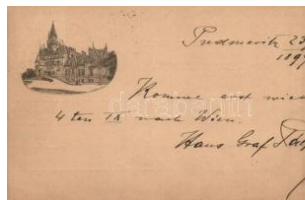 23
189
Komme erst wie
4 ten IX nach Wien.
Hans Graf
darabanth